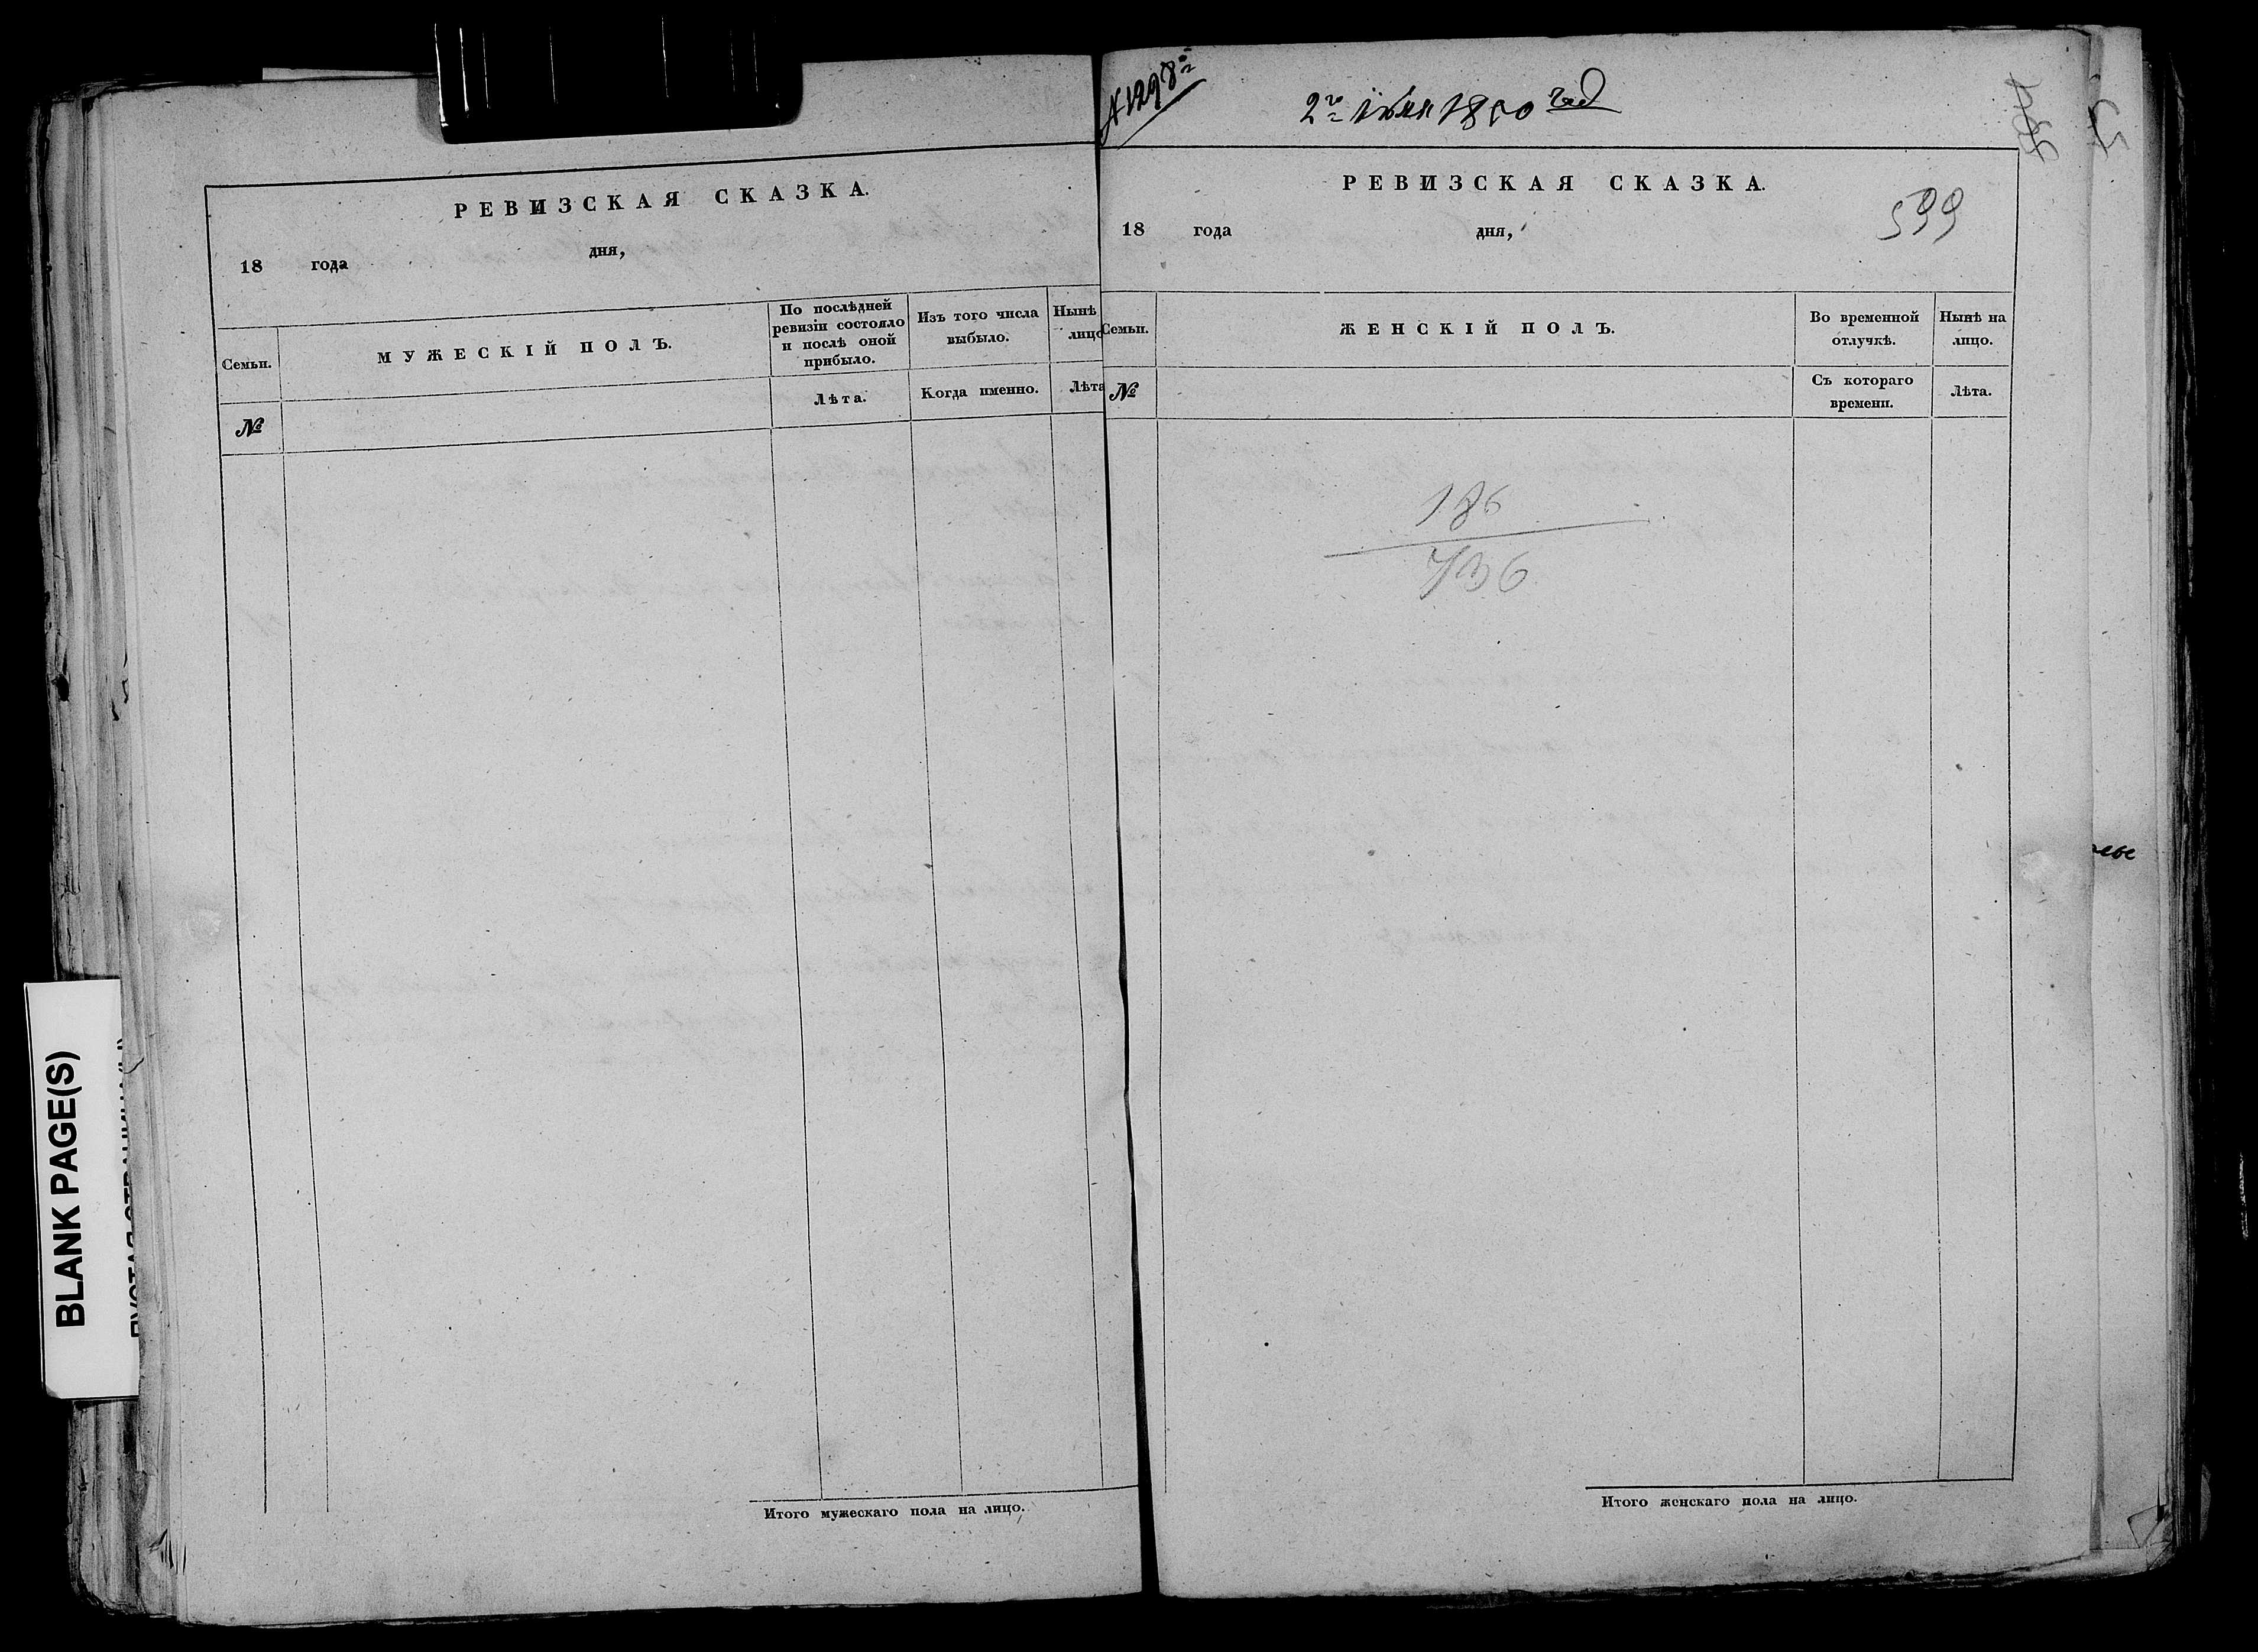 РЕВИЗСКАЯ СКАЗКА.
18 года дня,
Семьи.
МУЖЕСКІЙ ПОЛЪ.
По послѣдней
ревизіи состояло
и послѣ оной
прибыло.
Изъ того числа
выбыло.
Нынѣ
лицо
№
Лѣта.
Когда именно.
Лѣта
Итого мужескаго пола на лицо.
№ 1298й
2го Іюля 1850 год
РЕВИЗСКАЯ СКАЗКА.
599
18 года дня,
Семьи.
ЖЕНСКІЙ ПОЛЪ.
Во временной
отлучкѣ.
Нынѣ на
лицо.
№
Съ котораго
времени.
Лѣта.
186
736
Итого женскаго пола на лицо.
BLANK PAGE(S)